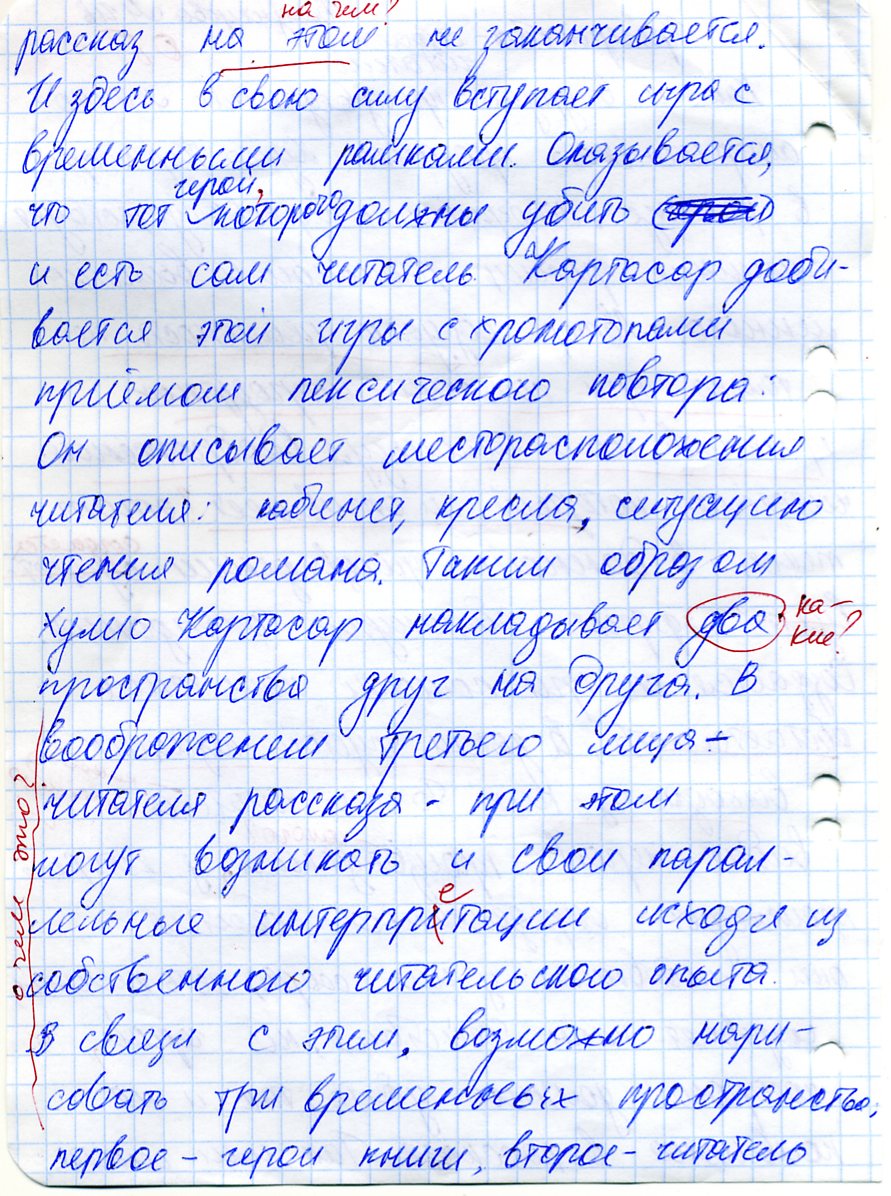 на чем?
рассказ на этом не заканчивается.
И здесь в свою силу вступает игра с
временными рамками. Оказывается,
герой,
что тот которого должны убить
и есть сам читатель. Картасар доби-
вается этой игры с хронотопами
приёмом лексического повтора:
Он описывает месторасположения
читателя: кабинет, кресла, ситуацию
чтения романа. Таким образом
Хулио Картасар накладывает два
ка-
кие?
пространства друг на друга. В
вооброжении третьего лица -
читателя рассказа - при этом
могут возникать и свои парал-
лельные интерпритации исходя из
е
собственного читательского опыта.
В связи с этим, возможно нари-
совать три временных простраства:
первое - герои книги, второе - читатель
о чем это?